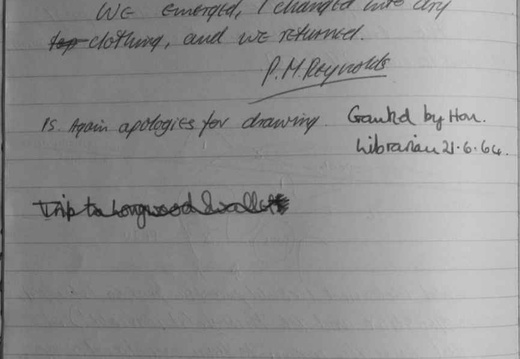 We emerged, I changed into dry
top clothing, and we returned.
P.M.Reynolds
P.S. Again apologies for drawing. Granted by Hon.
Librarian 21.6.64.
Trip to Longwood Swallet